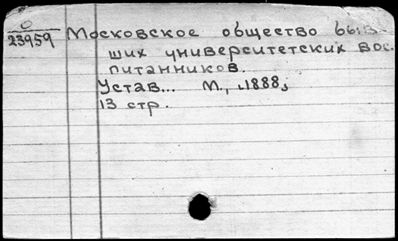 О
23959 Московское общество бывших университетских вос-
питанников.
Устав... М., 1888,
13 стр.